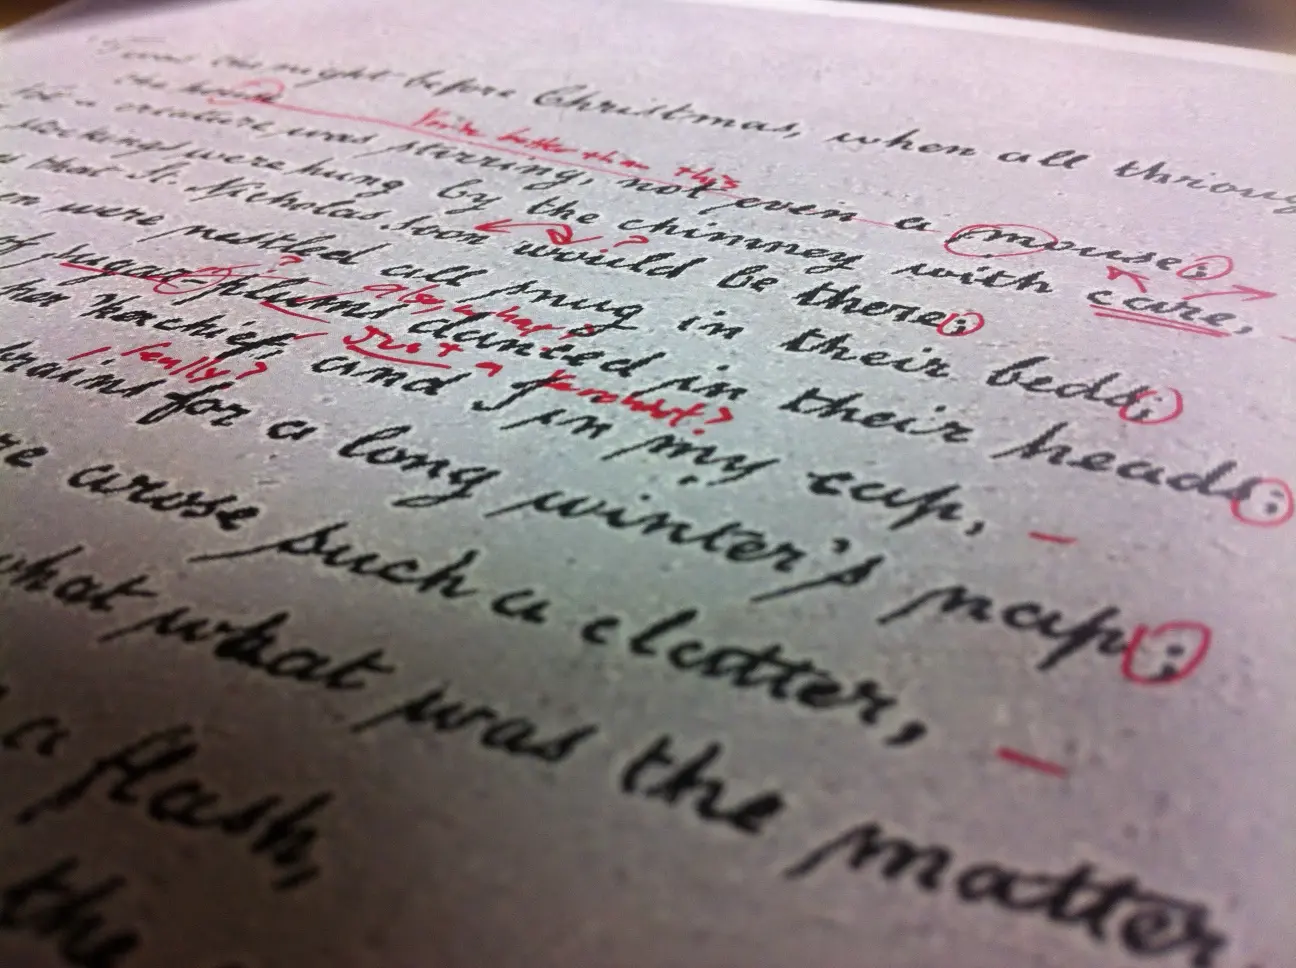 'Twas the night before Christmas, when all throug
the house
You're better than this
Not a creature was stirring, not even a mouse;
stockings were hung by the chimney with care,
that St. Nicholas soon would be there;
?
were nestled all snug in their beds;
?
of sugar-plums danced in their heads;
Just a
kerchief, and I in my cap,
really?
for a long winter's nap;
arose such a clatter,
what was the matter.
a flash,
the